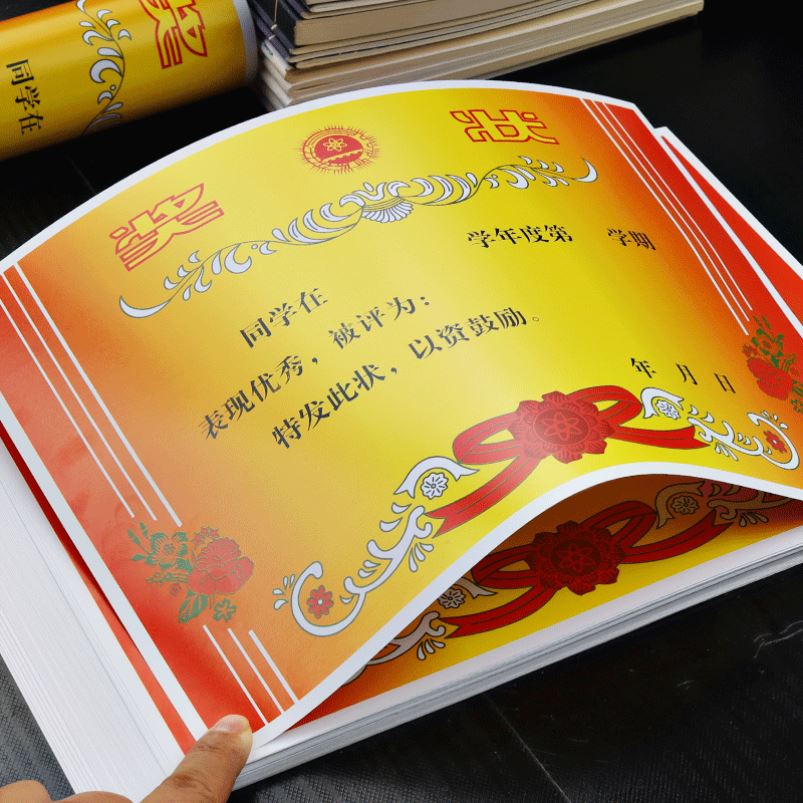 奖
同学在
奖 状
学年度第 学期
同学在
表现优秀，被评为：
特发此状，以资鼓励。
年 月 日